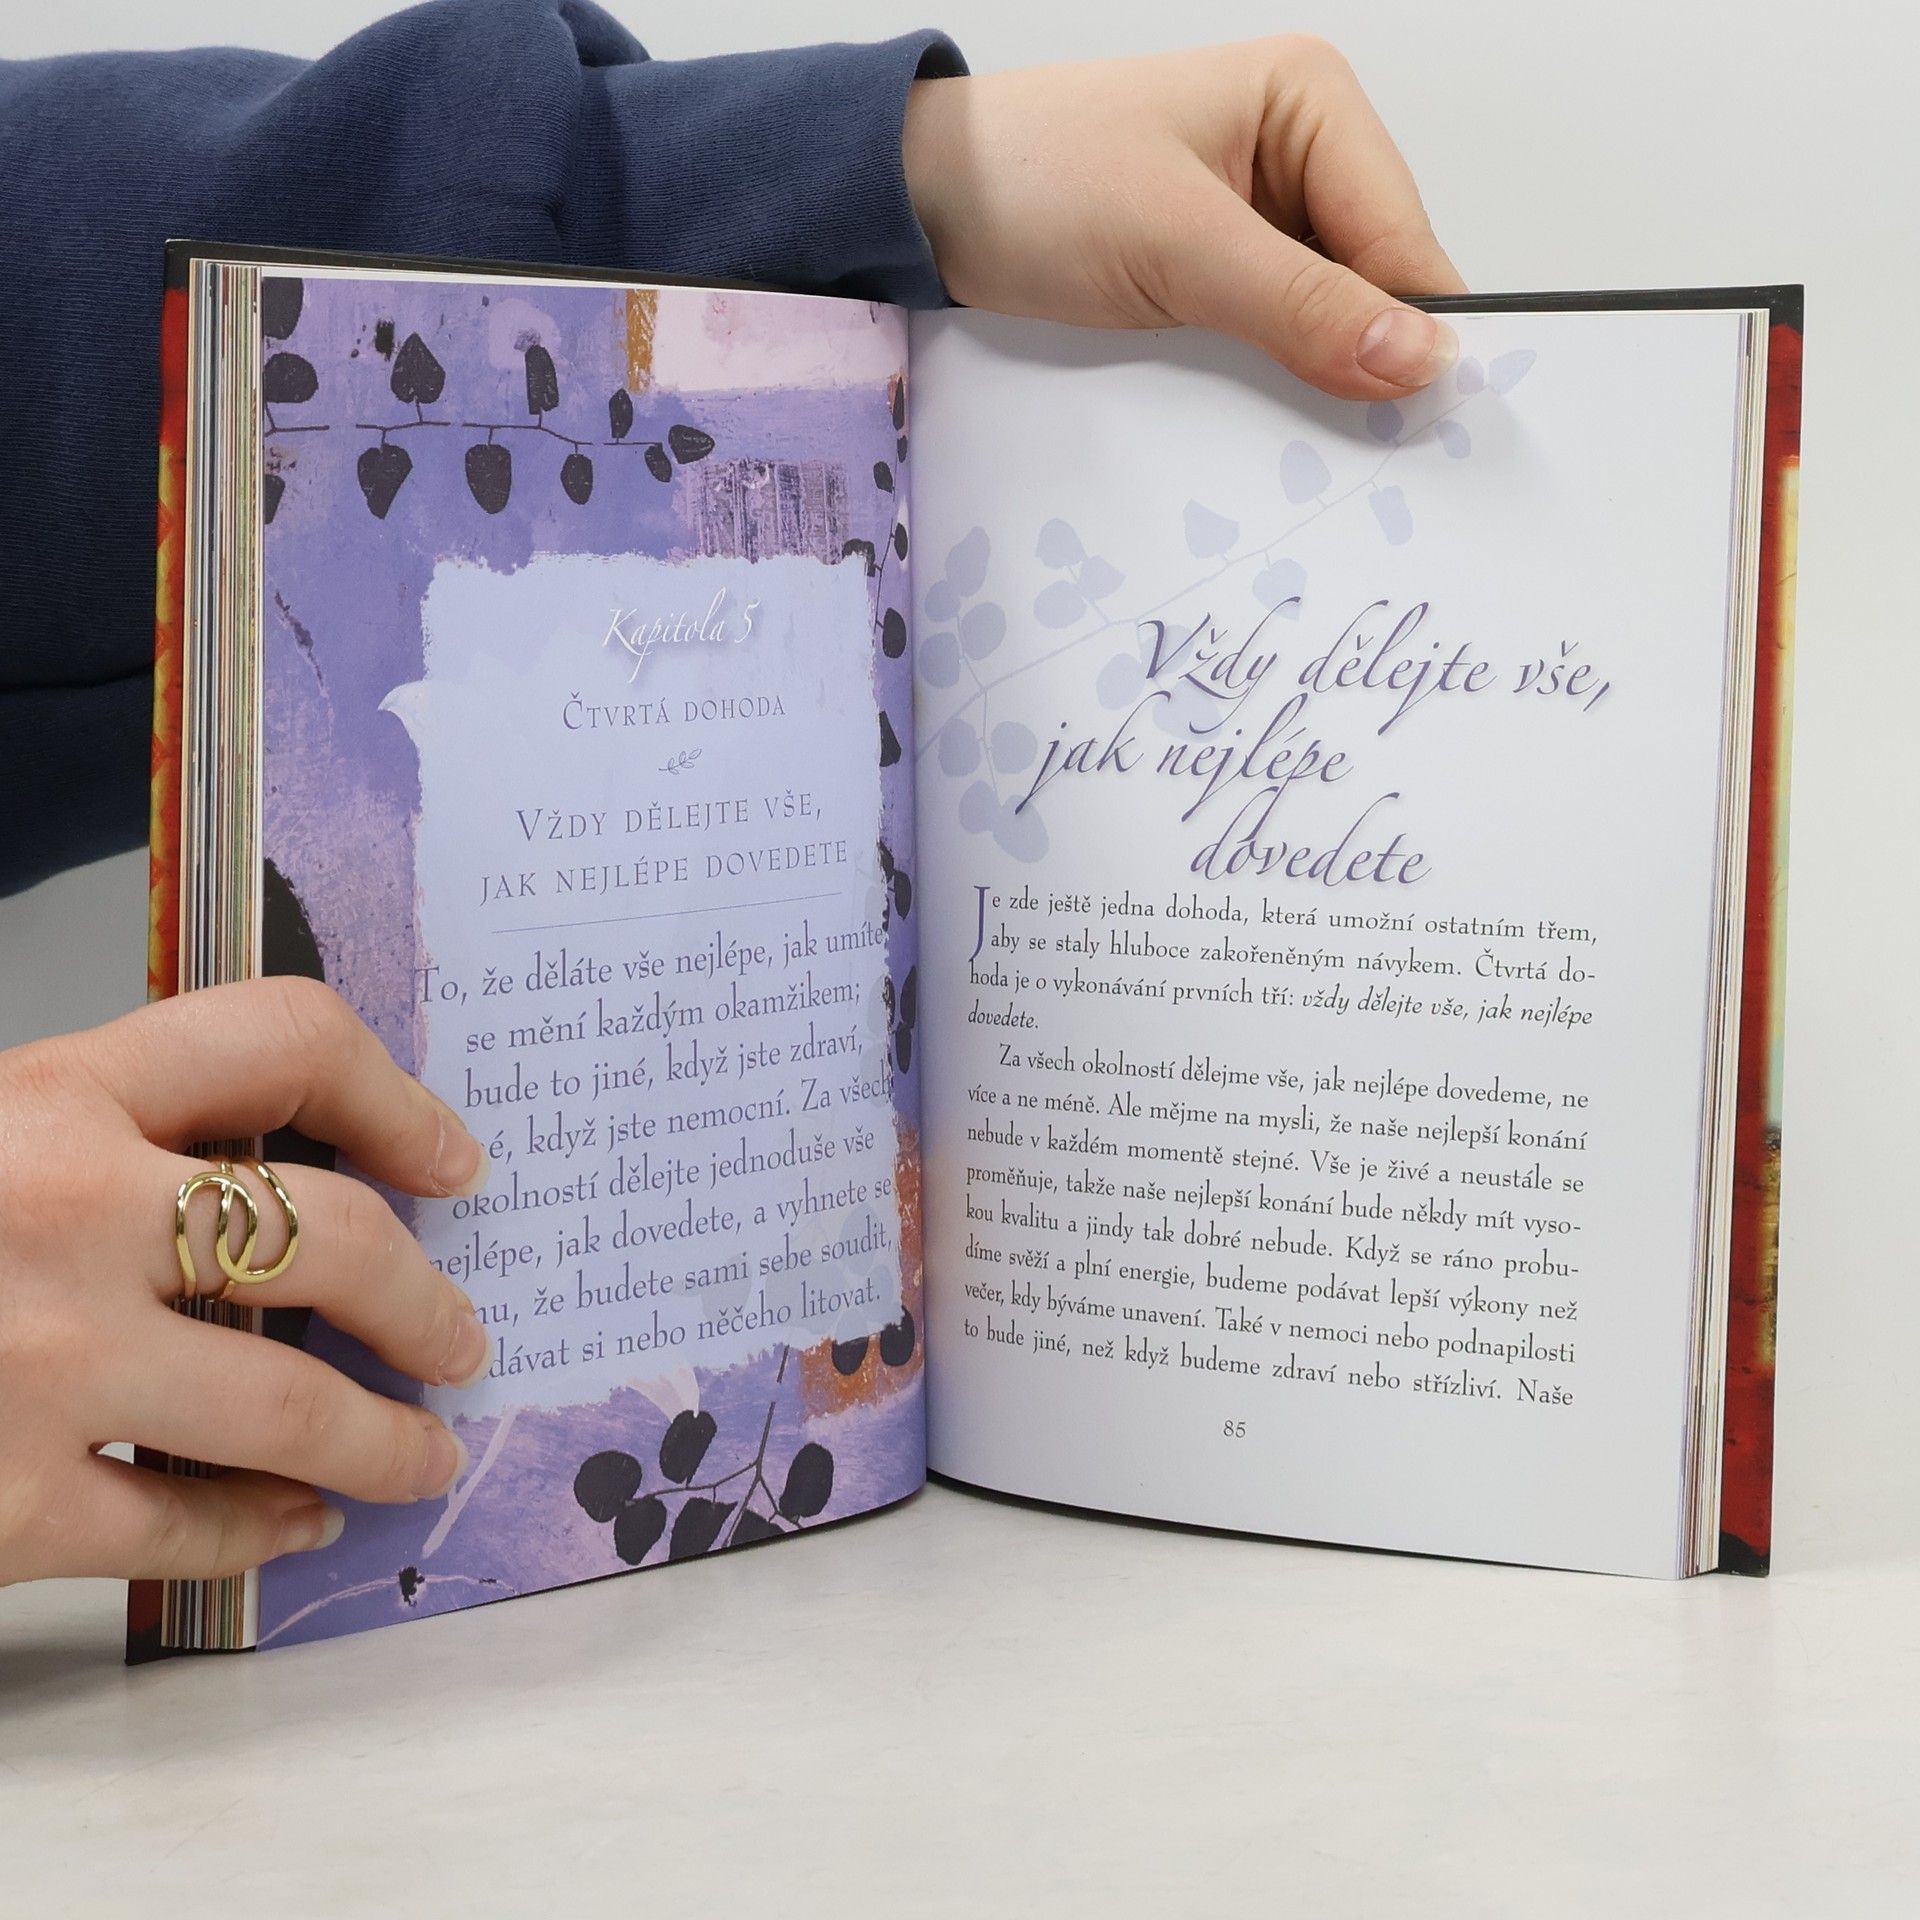 Kapitola 5
Čtvrtá dohoda
Vždy dělejte vše,
jak nejlépe dovedete
To, že děláte vše nejlépe, jak umíte,
se mění každým okamžikem;
bude to jiné, když jste zdraví,
když jste nemocní. Za všech
okolností dělejte jednoduše vše
nejlépe, jak dovedete, a vyhnete se
že budete sami sebe soudit,
si nebo něčeho litovat.
Vždy dělejte vše,
jak nejlépe
dovedete
Je zde ještě jedna dohoda, která umožní ostatním třem,
aby se staly hluboce zakořeněným návykem. Čtvrtá do-
hoda je o vykonávání prvních tří: vždy dělejte vše, jak nejlépe
dovedete.
Za všech okolností dělejme vše, jak nejlépe dovedeme, ne
více a ne méně. Ale mějme na mysli, že naše nejlepší konání
nebude v každém momentě stejné. Vše je živé a neustále se
proměňuje, takže naše nejlepší konání bude někdy mít vyso-
kou kvalitu a jindy tak dobré nebude. Když se ráno probu-
díme svěží a plní energie, budeme podávat lepší výkony než
večer, kdy býváme unavení. Také v nemoci nebo podnapilosti
to bude jiné, než když budeme zdraví nebo střízliví. Naše
85